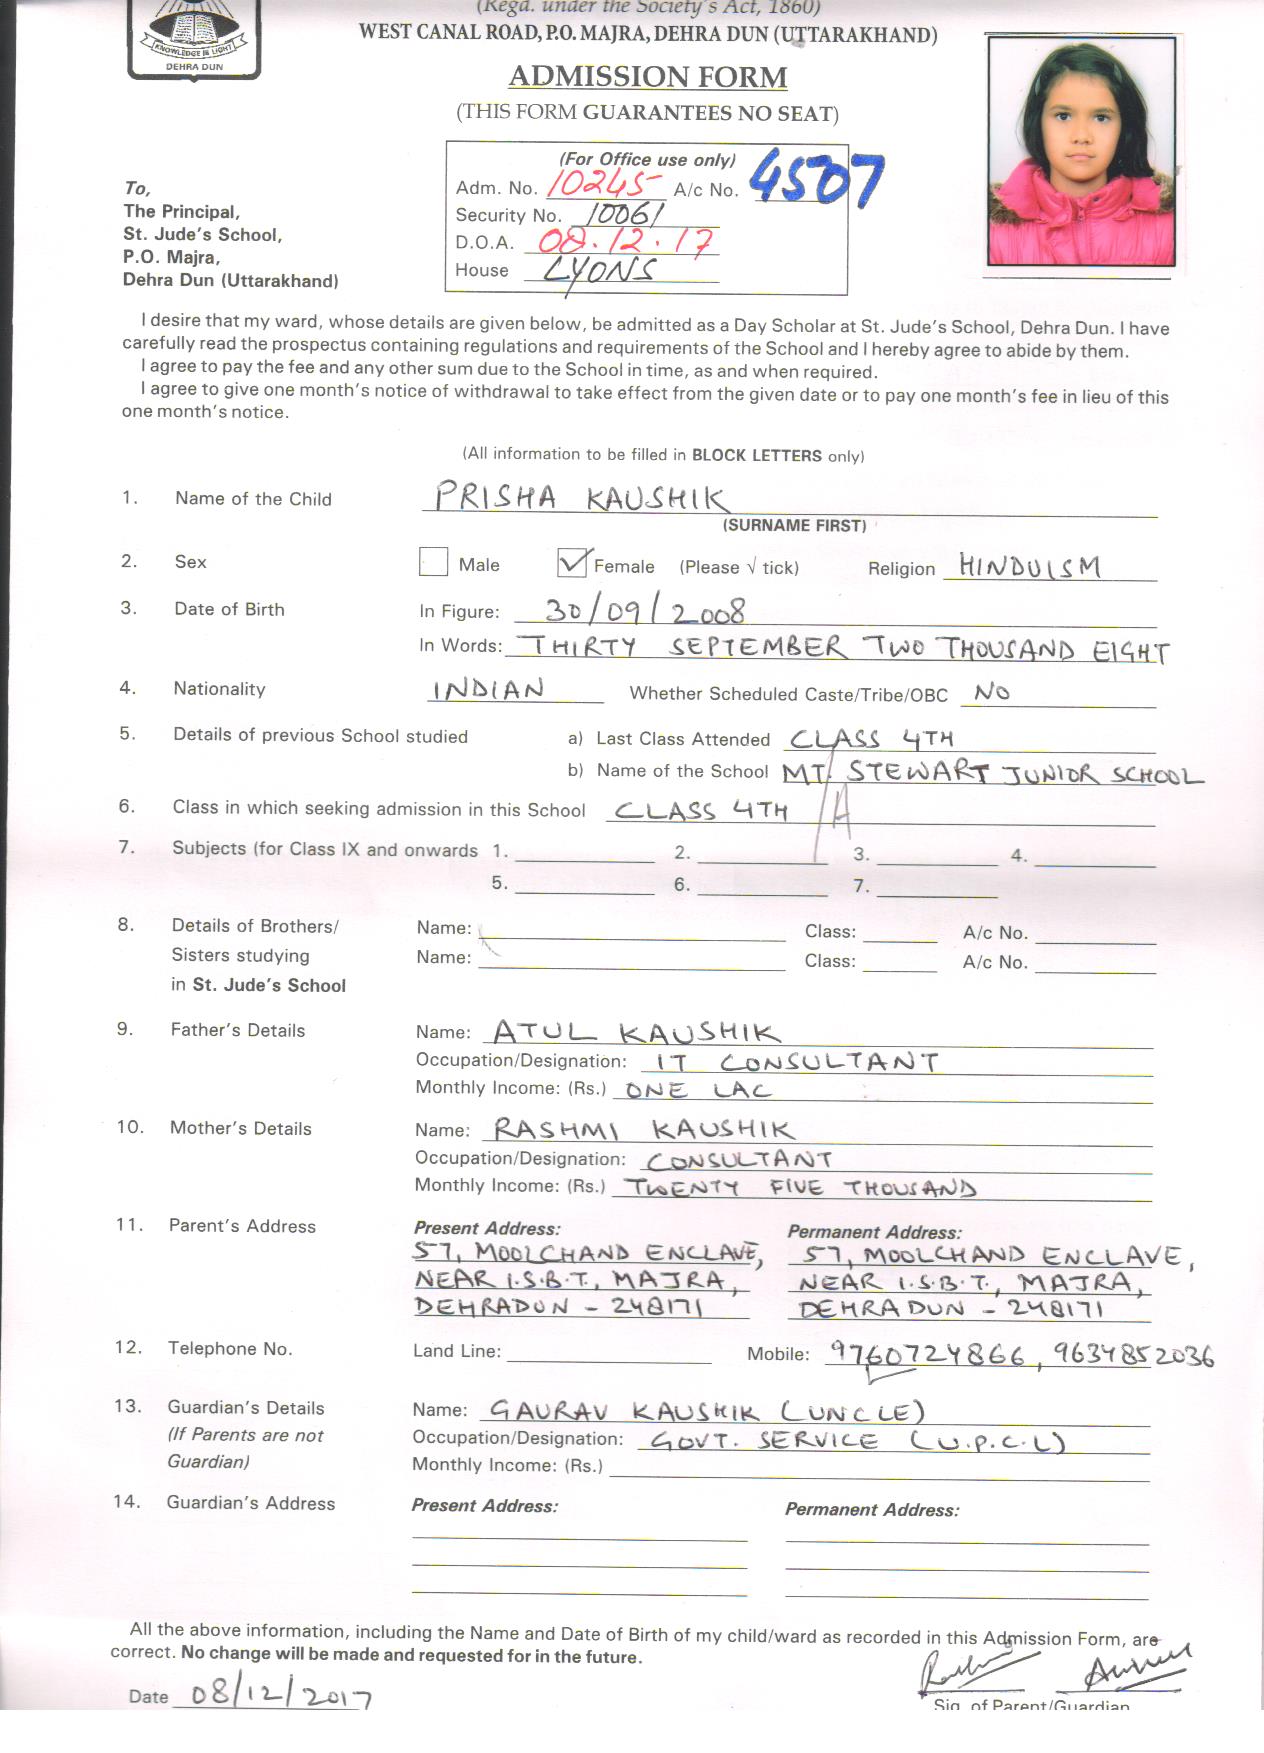 (Regd. under the Society's Act, 1860)
WEST CANAL ROAD, P.O. MAJRA, DEHRA DUN (UTTARAKHAND)
KNOWLEDGE IS LIGHT
DEHRA DUN
ADMISSION FORM
(THIS FORM GUARANTEES NO SEAT)
(For Office use only)
Adm. No. 10245 A/c No. 4507
Security No. 10061
D.O.A. 08.12.17
House LYONS
To,
The Principal,
St. Jude's School,
P.O. Majra,
Dehra Dun (Uttarakhand)
I desire that my ward, whose details are given below, be admitted as a Day Scholar at St. Jude's School, Dehra Dun. I have
carefully read the prospectus containing regulations and requirements of the School and I hereby agree to abide by them.
I agree to pay the fee and any other sum due to the School in time, as and when required.
I agree to give one month's notice of withdrawal to take effect from the given date or to pay one month's fee in lieu of this
one month's notice.
(All information to be filled in BLOCK LETTERS only)
1. Name of the Child PRISHA KAUSHIK
(SURNAME FIRST)
2. Sex Male Female (Please √ tick) Religion HINDUISM
3. Date of Birth In Figure: 30/09/2008
In Words: THIRTY SEPTEMBER TWO THOUSAND EIGHT
4. Nationality INDIAN Whether Scheduled Caste/Tribe/OBC NO
5. Details of previous School studied a) Last Class Attended CLASS 4TH
b) Name of the School MT. STEWART JUNIOR SCHOOL
6. Class in which seeking admission in this School CLASS 4TH / A
7. Subjects (for Class IX and onwards 1. 2. 3. 4.
5. 6. 7.
8. Details of Brothers/ Name: Class: A/c No.
Sisters studying Name: Class: A/c No.
in St. Jude's School
9. Father's Details Name: ATUL KAUSHIK
Occupation/Designation: IT CONSULTANT
Monthly Income: (Rs.) ONE LAC
10. Mother's Details Name: RASHMI KAUSHIK
Occupation/Designation: CONSULTANT
Monthly Income: (Rs.) TWENTY FIVE THOUSAND
11. Parent's Address Present Address: Permanent Address:
57, MOOLCHAND ENCLAVE, 57, MOOLCHAND ENCLAVE,
NEAR I.S.B.T., MAJRA, NEAR I.S.B.T., MAJRA,
DEHRADUN - 248171 DEHRADUN - 248171
12. Telephone No. Land Line: Mobile: 9760724866, 9634852036
13. Guardian's Details Name: GAURAV KAUSHIK (UNCLE)
(If Parents are not Occupation/Designation: GOVT. SERVICE (U.P.C.L)
Guardian) Monthly Income: (Rs.)
14. Guardian's Address Present Address: Permanent Address:
All the above information, including the Name and Date of Birth of my child/ward as recorded in this Admission Form, are
correct. No change will be made and requested for in the future.
Date 08/12/2017
Sig. of Parent/Guardian